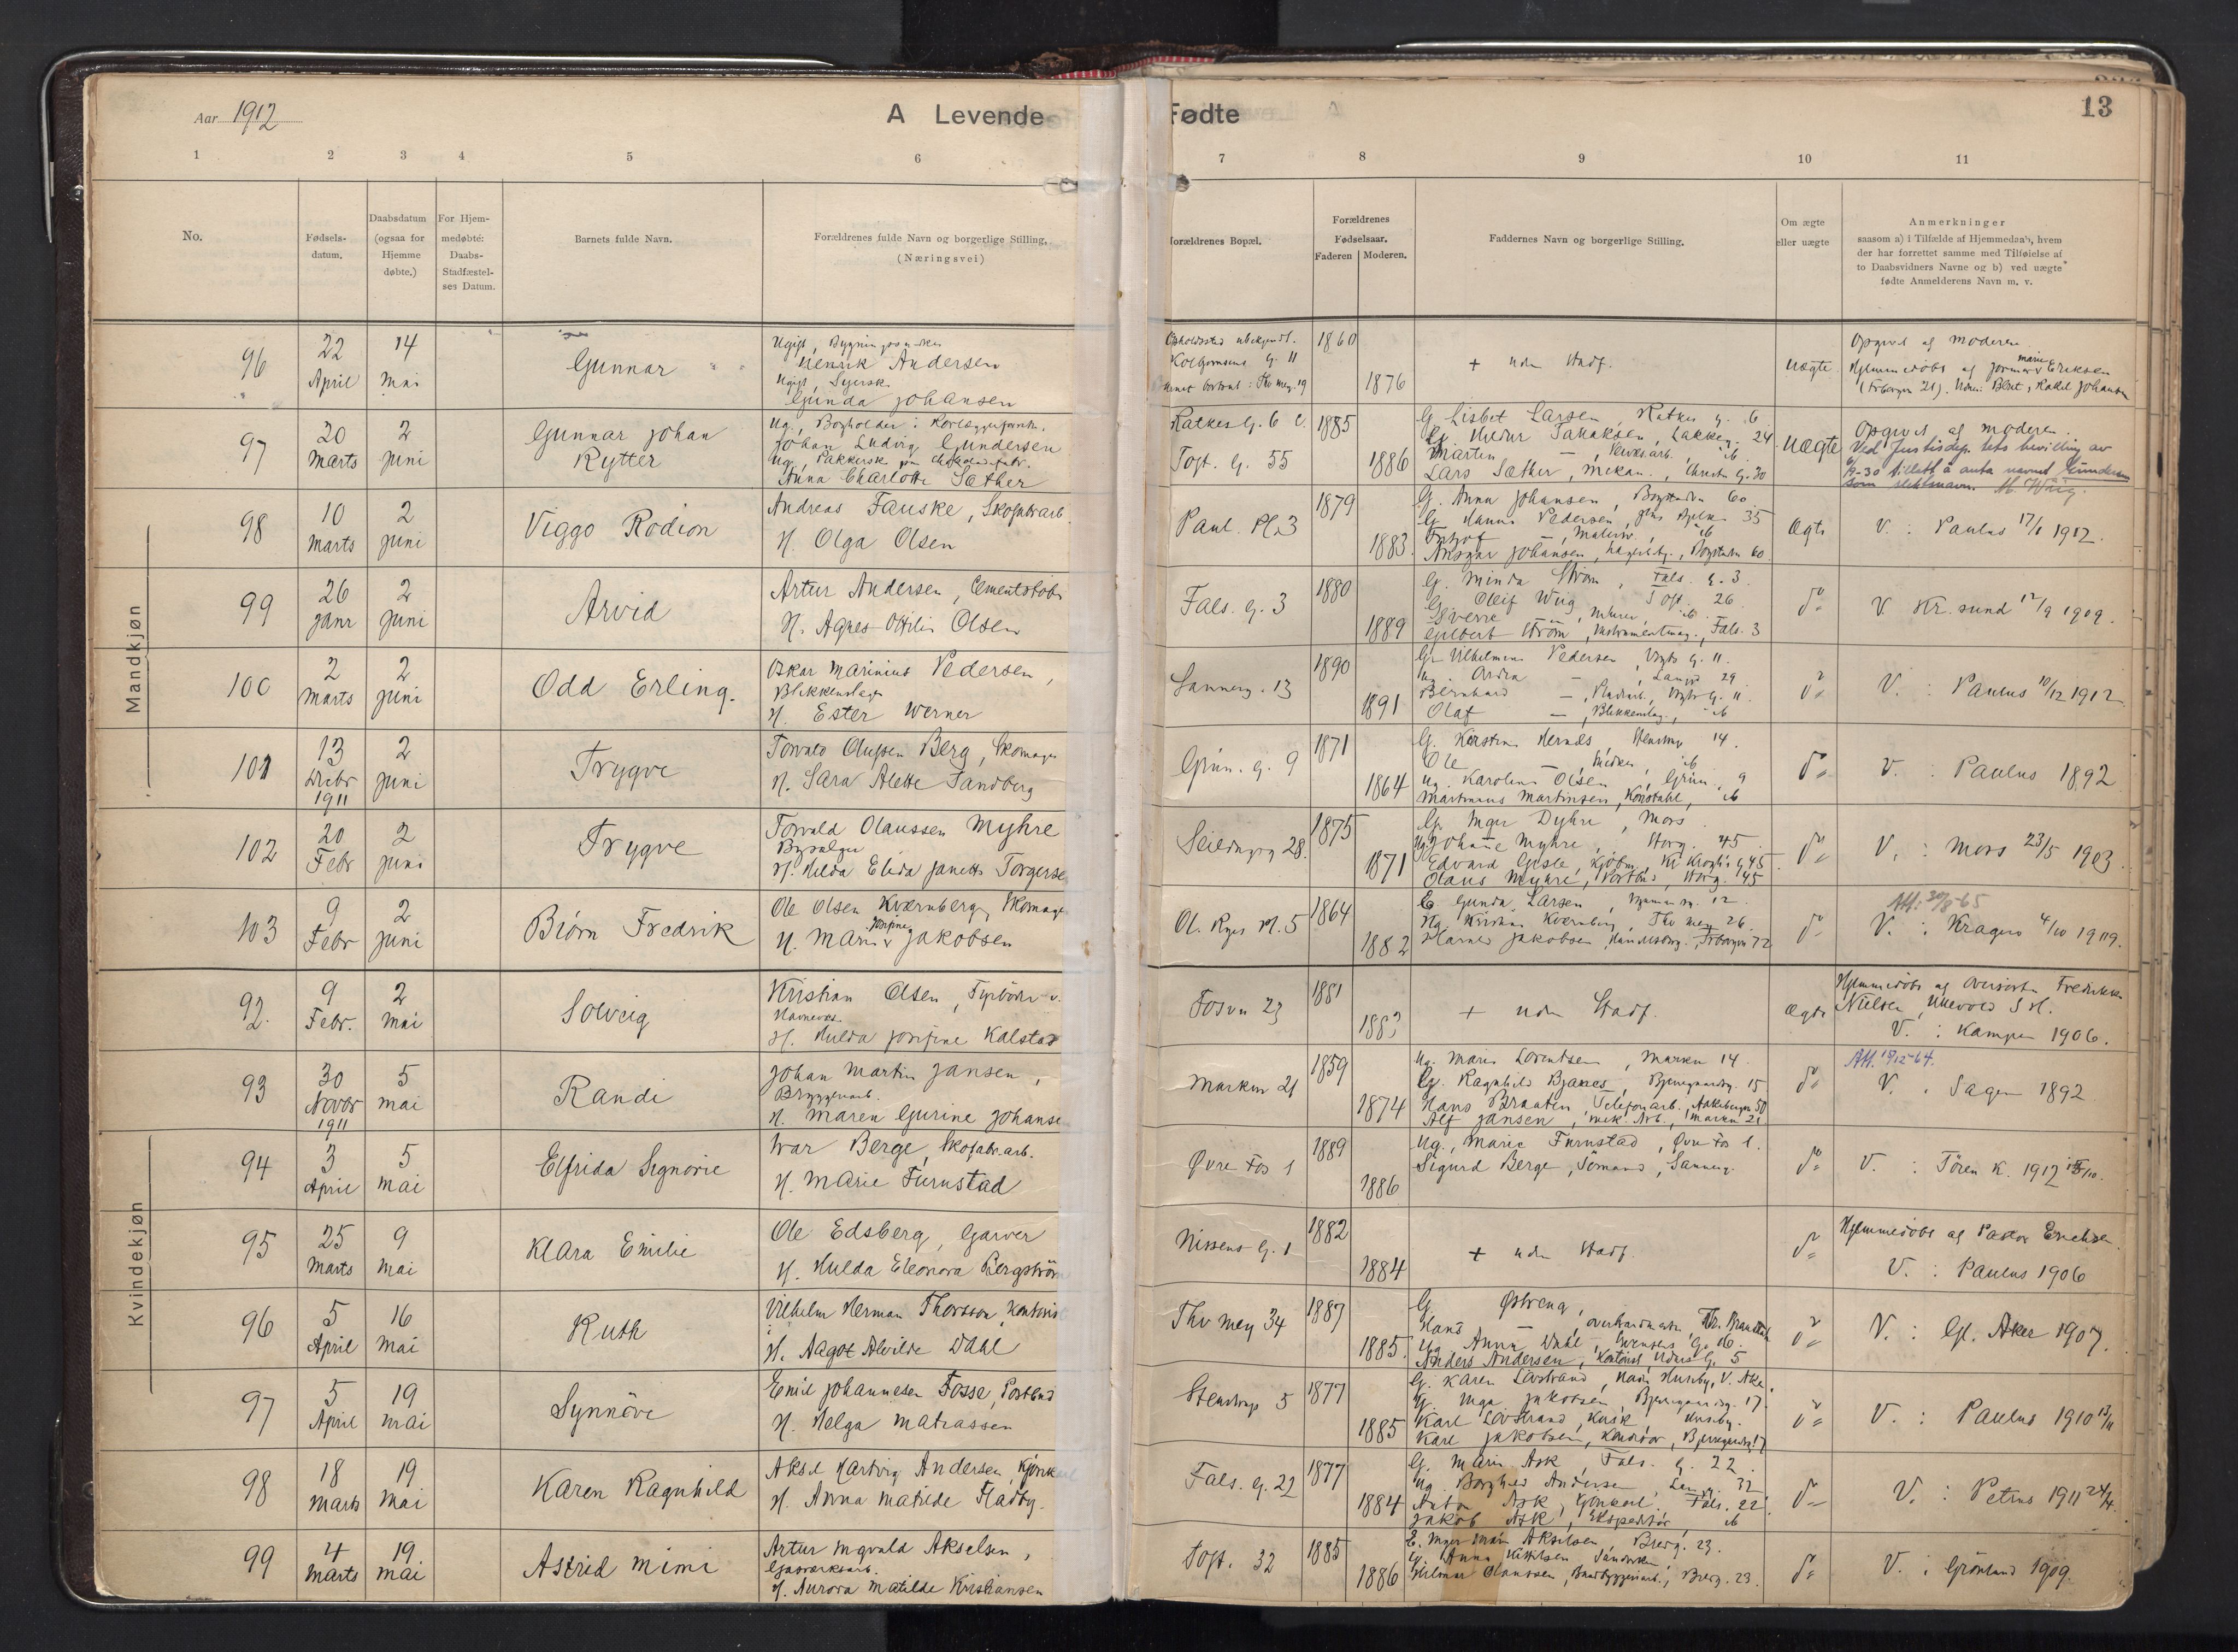 Aar 1912
A Levende Fødte
13
1 2 3 4 5 6 7 8 9 10 11
No.
Fødsels-
datum.
Daabsdatum
(ogsaa for
Hjemme
døbte.)
For Hjem-
medøbte:
Daabs-
Stadfæstel-
ses Datum.
Barnets fulde Navn.
Forældrenes fulde Navn og borgerlige Stilling.
(Næringsvei)
Forældrenes Bopæl.
Forældrenes
Fødselsaar.
Faderen Moderen.
Faddernes Navn og borgerlige Stilling.
Om ægte
eller uægte
Anmerkninger
saasom a) i Tilfælde af Hjemmedaab, hvem
der har forrettet samme med Tilføielse af
to Daabsvidners Navne og b) ved uægte
fødte Anmelderens Navn m. v.
Mandkjøn
96
22
April
14
Mai
Gunnar
Henrik Andersen
Ugift, Syersk
Gunda Johansen
1860
1876
+ uden Stadf.
uægte
Opgivet af moderen
Hjemmedøbt af jormor Marie Eriksen
97
20
Marts
2
Juni
Gunnar Johan
Rytter
Johan Ludvig Gundersen
Anna Charlotte Sæther
Ratkes G. 6
Toft. G. 55
1885
1886
G. Lisbet Larsen Ratkes g. 6
Lars Sæther, Mekan., Christi G. 30
uægte
Opgivet af moderen.
Ved Justisdep.tets bevilling av
9-30 tillatt å anta navnet Gundersen
som slektsnavn.
98
10
Marts
2
Juni
Viggo Rodion
Andreas Fauske, Skofabr.arb
H. Olga Olsen
Paul. Pl. 3
1879
1883
G. Anna Johansen, Bogstadvn 60
G. Hanna Pedersen, 35
Ansgar Johansen, Bogstadvn 60
Ægte
V. : Paulus 17/1 1912.
99
26
Janr
2
Juni
Arvid
Artur Andersen, Cementstøb
H. Agnes Ottilie Olsen
Fals. G. 3
1880
1889
G. Minda Strøm, Fals. g. 3
G. Oleif Wiig Toft. 26
Sverre — , Murer, ib
Gilbert Strøm, Instrumentmag., Fals. 3
do
V. Kr.sund 12/9 1909.
100
2
Marts
2
Juni
Odd Erling.
Oskar Marinius Pedersen,
Blikkenslager
H. Ester Werner
Sannerg. 13
1890
1891
G. Vilhelmine Pedersen, Vogts G. 11.
Bernhard —
Olaf — , Blikkenslag., ib
do
V. : Paulus 10/12 1912
101
13
Decbr
1911
2
Juni
Trygve
Torvald Olufsen Berg, Skomager
H. Sara Alette Sandberg
Grün. G. 9
1871
1864
G. Kirstine Hernæs, Stenstrup 14.
Ole — , Snedker, ib
Ug. Karoline Olsen, Grün. 9
Martinus Martinsen, Konstabl, ib
do
V. : Paulus 1892
102
20
Febr
2
Juni
Trygve
Torvald Olaussen Myhre
Bysælger
H. Hilda Elida Janette Torgerse
Seilduksg 28.
1875
1871
G. Inger Dyhre, Mors
Ug. Johanne Myhre, Storg. 45
Olaus Myhre, Storg. 45
do
V. : Moss 23/5 1903
103
9
Febr
2
Juni
Biørn Fredrik
Ole Olsen Kværnberg, Skomager
H. Marie Josefine Jakobsen
Ol. Ryes Pl. 5
1864
1882
E. Gunda Larsen
Ug. Kristian Kværnberg, Thv Mey. 26
do
Att. 30/8-65
V. : Kragerø 4/10 1909.
Kvindekjøn
92.
9
Febr.
2
Mai
Solveig
Kristian Olsen, Fyrbøder v.
Havnevæs.
H. Hulda Josefine Kalstad
Fosvn 23
1881
1883
+ uden Stadf.
Ægte
Hjemmedøbt af Oversøster Fredrikke
Nielsen, Ullevold S. H.
V. : Kampen 1906.
93
30
Novbr
1911
5
Mai
Randi
Johan Martin Jansen,
Bryggeriarb.
H. Maren Gurine Johanse
Markvn 21
1859
1874
Ug. Marie Lorentsen, Markvn 14.
G. Ragnhild Bjanes, Bjerregaardsg. 15
Hans Braaten, Telefonarb., Aakebergvn 50
Alf Jansen, mek. Arb., Markvn 21
do
Att. 19/12-64.
V. : Sagen 1892
94
3
April
5
Mai
Elfrida Signorie
Ivar Berge, Skofabr.arb.
H. Marie Furustad
Øvre Fos 1
1889
1886
Ug., Marie Furustad, Øvre Fos 1.
Sigurd Berge, Sømand, Sannerg.
do
V. : Tøien K. 1912 15/10.
95
25
Marts
9
Mai
Klara Emilie
Ole Edsberg, Garver
H. Hulda Eleonora Bergstrøm
Nissens G. 1
1882
1884
+ uden Stadf.
do
Hjemmedøbt af Pastor Erichsen.
V. : Paulus 1906
96
5
April
16
Mai
Ruth
Vilhelm Herman Thorsson, Kontorist
H. Aagot Alvilde Dahl
Thv Mey 34
1887
1885.
G. Østreng,
Hans —
Ug. Anna Dahl
Anders Andersen, Kontorist, 5
do
V. : Gl. Aker 1907.
97
5
April
19
Mai
Synnøve
Emil Johannesen Fosse, Postbud
H. Helga Matiassen
Stenstrup 5
1877
1885
G. Karen Løvstrand, Husby, V. Aker
G. Inga Jakobsen, Bjerregaardsg. 17.
Karl Løvstrand, Kusk, Husby.
Karl Jakobsen, Konduktør, Bjerregaardsg 17
do
V. : Paulus 1910 13/11
98
18
Marts
19
Mai
Karen Ragnhild
Aksel Hartvig Andersen, Kjørekarl
H. Anna Matilde Fladby.
Fals. G. 22
1877
1884
G. Marie Ask, Fals. g. 22.
Ug. Borghild Andersen, 32
Anton Ask, Gjørkarl. Fals. 22
Jakob Ask, Ekspeditør ib
do
V. : Petrus 1911 24/4.
99
4
Marts
19
Mai
Astrid Mimi
Artur Ingvald Akselsen,
Gasværksarb.
H. Aurora Matilde Kristiansen
Toft. 32
1885
1886
E. Inger Marie Akselsen, Breig. 23.
G. Anna Kittilsen
Hilmar Olaussen, Breig. 23.
do
V. : Grønland 1909.